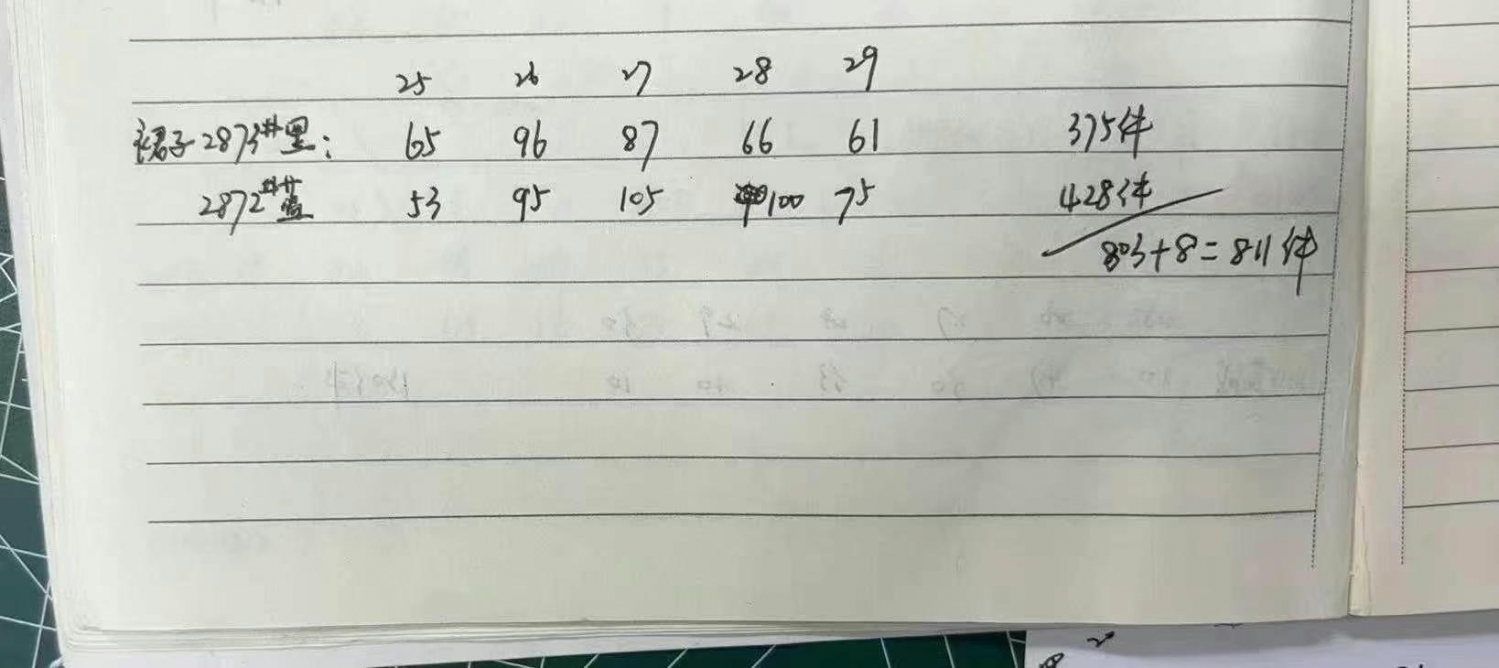 25 26 27 28 29
裙子2873#黑: 65 96 87 66 61 375件
2872#蓝 53 95 105 100 75 428件
803+8=811件